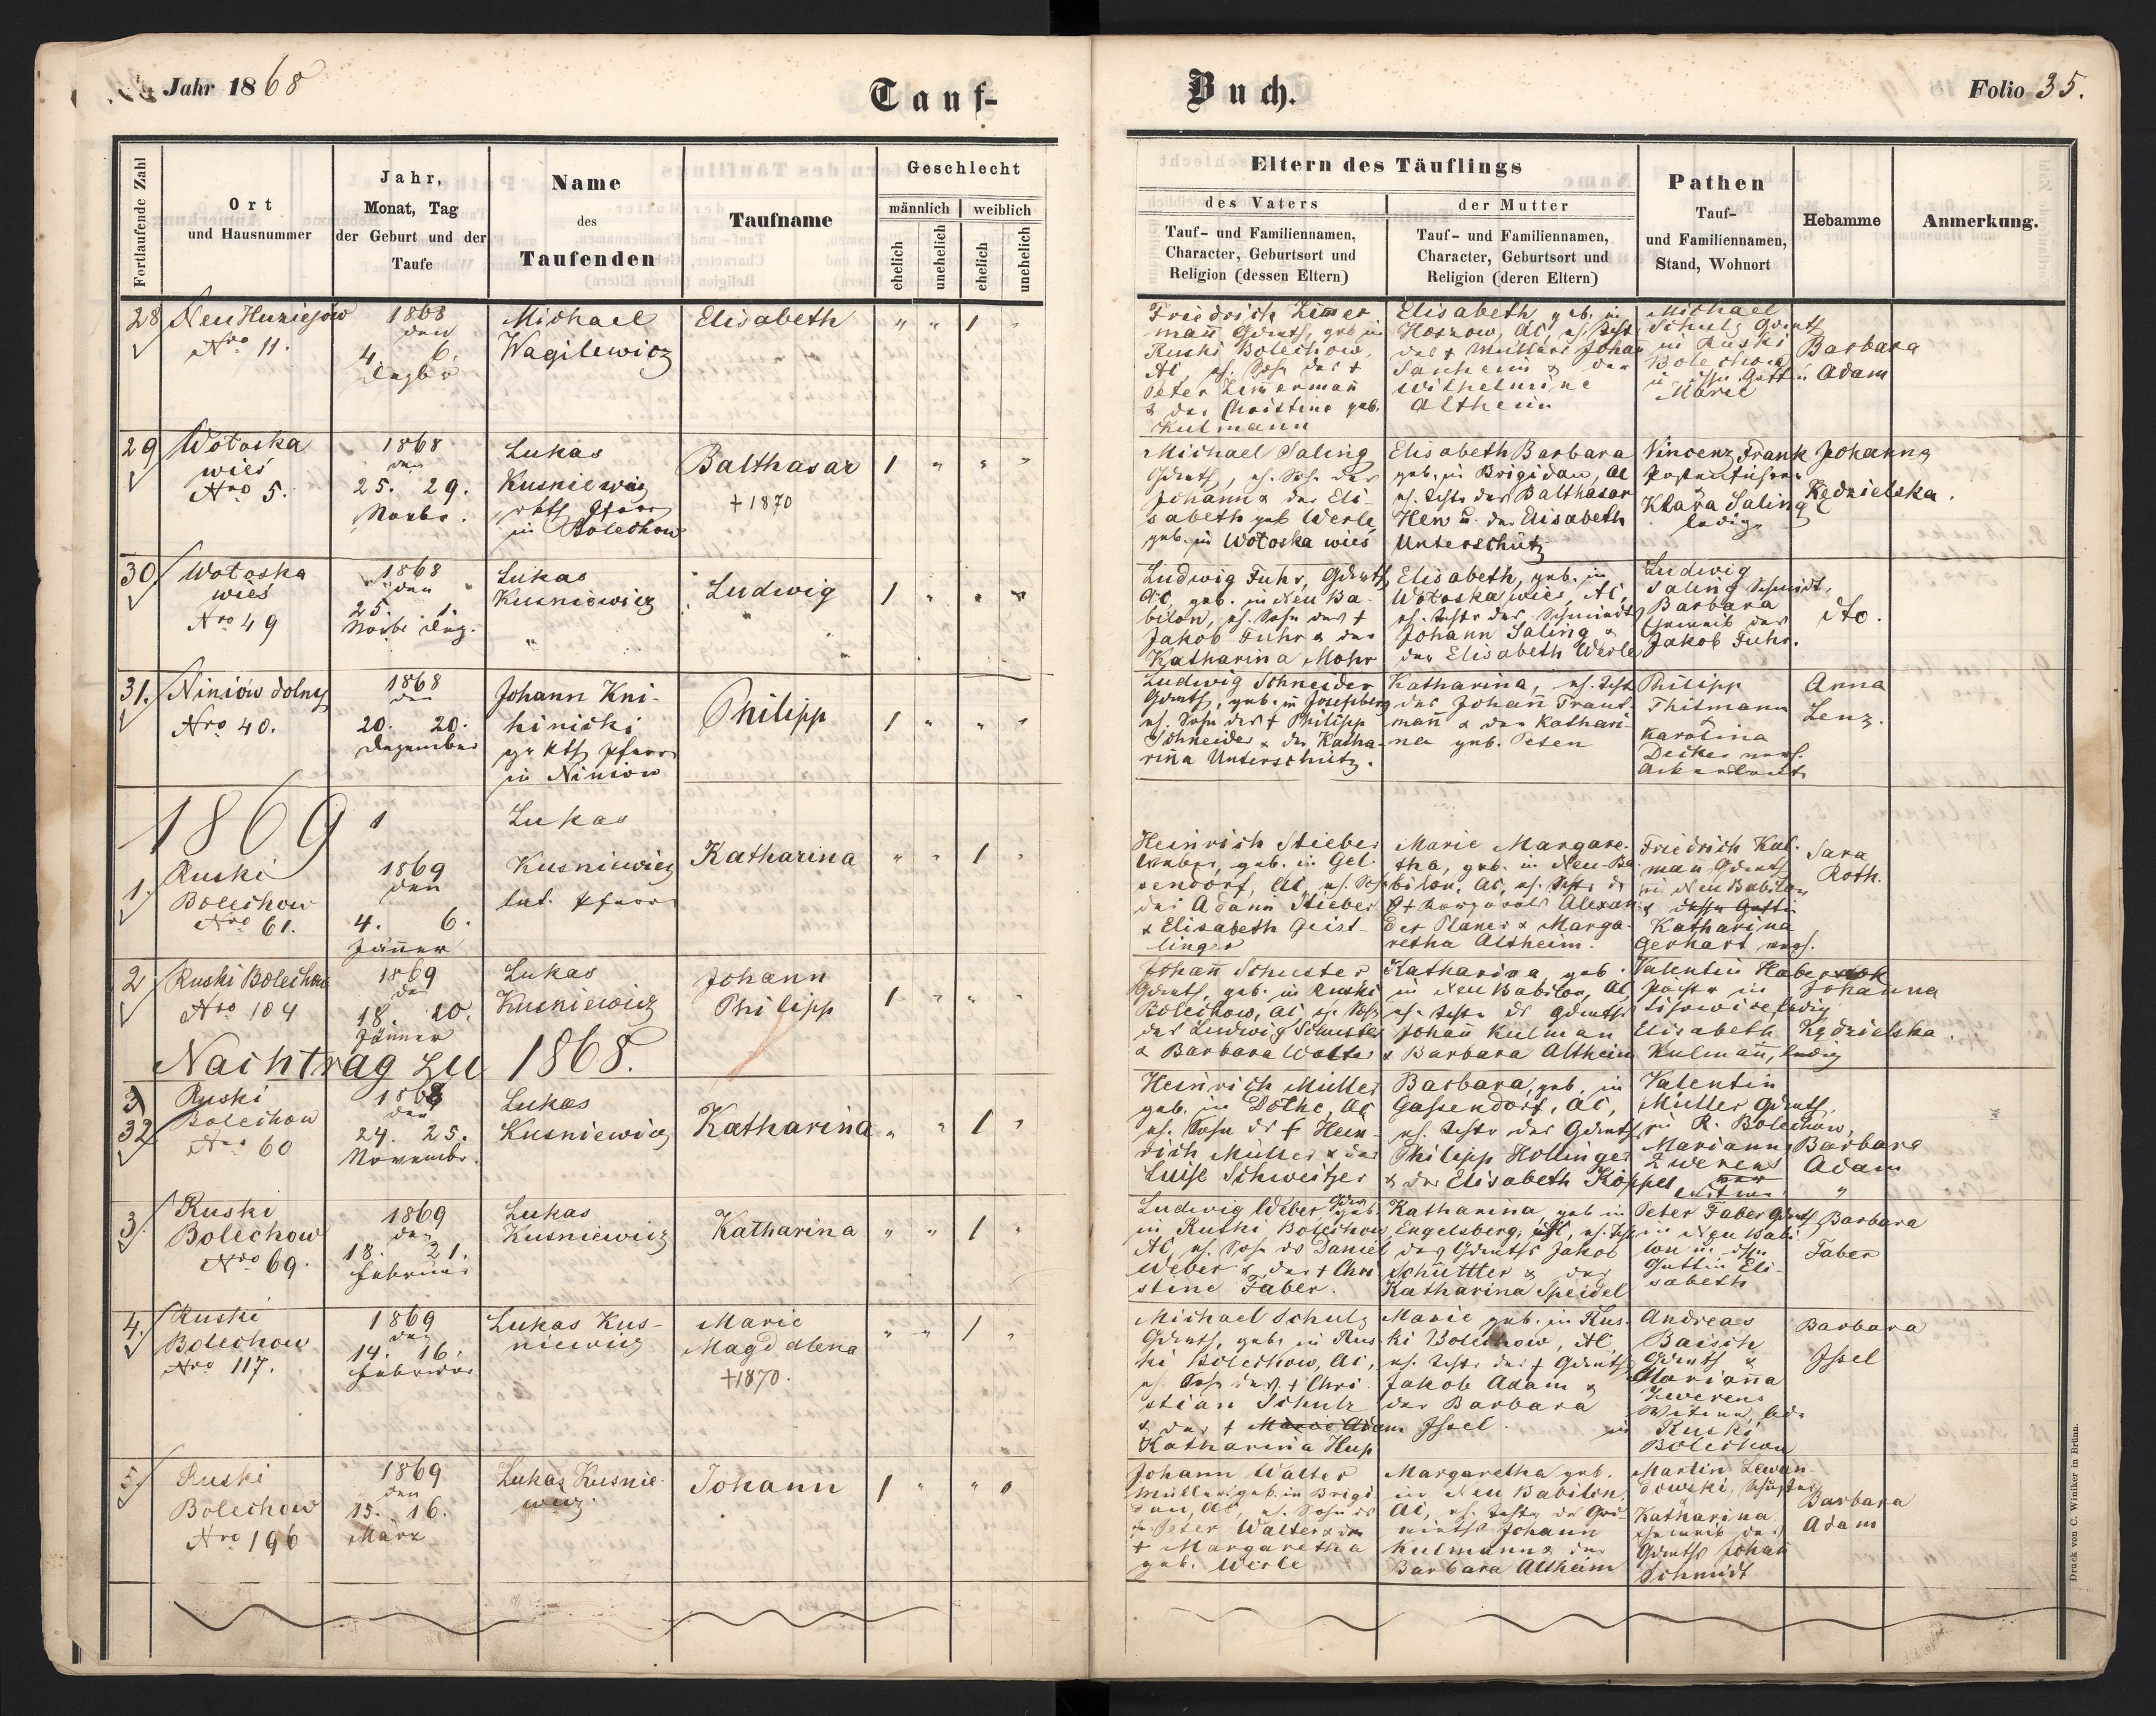 Jahr 1868
Tauf-
Buch.
Folio 35.
Fortlaufende Zahl
Ort
und Hausnummer
Jahr,
Monat, Tag
der Geburt und der
Taufe
Name
des
Taufenden
Taufname
Geschlecht
männlich
weiblich
ehelich
unehelich
ehelich
unehelich
Eltern des Täuflings
des Vaters
Tauf- und Familiennamen,
Character, Geburtsort und
Religion (dessen Eltern)
der Mutter
Tauf- und Familiennamen,
Character, Geburtsort und
Religion (deren Eltern)
Pathen
Tauf-
und Familiennamen,
Stand, Wohnort
Hebamme
Anmerkung.
28
Neu Huziejow
Nro 11.
1868
den
4. 6.
Dezbr
Michael
Wagilewicz
Elisabeth
" " 1 "
Friedrich Zimer
mañ Gdruth, geb in
Ruski Bolechow,
AC, eh. Sohn des †
Peter Zimerman
& der Christine geb.
Kulmann
Elisabeth, geb. in
Hoszow, AC, eh. Toch
des † Müllers Johan
& der
Wilhelmine
Altheim
Michael
Schulz Gdruth
in Ruski
Bolechow
u. Gattin
Marie
Barbara
Adam
29
Wołoska
wieś
Nro 5.
1868
den
25. 29.
Novbr.
Lukas
Kusniewicz
rkth Pfarr
in Bolechow
Balthasar
+ 1870
1 " " "
Michael Saling
Gdruth, eh. Sohn des
Johann & der Eli-
sabeth geb Werle,
geb. in Wołoska wieś
Elisabeth Barbara
geb. in Brigidau, AC
eh. Tochtr des Balthasar
Hew u. der Elisabeth
Unterschütz
Vincenz Frank
Klara Saling
ledig
Johanna
Kędzielska.
30
Wołoska
wieś
Nro 49
1868
den
25. 1.
Novbr Dez.
Lukas
Kusniewicz
Ludwig
1 " " "
Ludwig Fuhr, Gdruth
AC, geb. in Neu Ba-
bilon, eh. Sohn des †
Jakob Fuhr & der
Katharina Mohr
Elisabeth, geb. in
Wołoska wieś, AC,
eh. Tochtr des Schmiedts
Johann Saling &
der Elisabeth Werle
Ludwig
Saling Schmidt,
Barbara
Eheweib des
Jakob Fuhr.
dto.
31.
Niniów dolny
Nro 40.
1868
den
20. 20.
Dezember
Johann Kni-
hinicki
gr kth Pfarr
in Niniow
Philipp
1 " " "
Ludwig Schneider
Gdruth, geb. in Josefsberg
eh. Sohn des † Philipp
Schneider & der Katha-
rina Unterschütz.
Katharina, eh. Toch
des Johañ Traut-
mañ & der Kathari-
na geb. Peten
Philipp
Thitmann
&
Karolina
Decker
Anna
Lenz.
1869
1
1.
Ruski
Bolechow
Nro 61.
1869
den
4. 6.
Jänner
Lukas
Kusniewicz
lat. Pfarr
Katharina
" " 1 "
Heinrich Stieber
Weber, geb. in Gel-
sendorf, AC, eh. Sohn
des Adam Stieber
& Elisabeth Geist-
linger
Marie Margare-
tha, geb. in Neu-Ba-
bilon, AC, eh. Tochtr d
† Korporals Alexan-
der Planer & Marga-
retha Altheim.
Friedrich Kul-
mañ, Gdruth
in Neu Babilon
& dessen Gattin
Katharina
Gerhart
Sara
Roth.
2
Ruski Bolechow
Nro 104
1869
den
18. 20.
Jänner
Lukas
Kusniewicz
Johann
Philipp
1 " " "
Johañ Schuster
Gdruth, geb. in Ruski
Bolechow, AC, eh. Sohn
des Ludwig Schuster
& Barbara Walter
Katharina, geb.
in Neu Babilon, AC
eh. Tochtr ds Gdruths
Johañ Kulman
& Barbara Altheim
Valentin
ledig
Elisabeth
Kulmañ, ledig
Johanna
Kędzielska.
Nachtrag zu 1868.
3
32
Ruski
Bolechow
Nro 60
1868
den
24. 25.
Novembr.
Lukas
Kusniewicz
Katharina
" " 1 "
Heinrich Müller
geb. in Dolhe, AC
eh. Sohn ds † Hein-
rich Müller & der
Luise Schweitzer
Barbara, geb. in
Gassendorf, AC,
eh. Tochtr des Gdruth
Philipp Hollinger
& der Elisabeth Köppel
Valentin
Müller Gdruth
in R. Bolechow,
Marianna
Zwerens
Barbara
Adam
"
3.
Ruski
Bolechow
Nro 69.
1869
den
18. 21.
Februar
Lukas
Kusniewicz
Katharina
" " 1 "
Ludwig Weber geb.
in Ruski Bolechow,
AC, eh. Sohn ds Daniel
Weber & der † Chri
stine Faber.
Katharina, geb in
Engelsberg, AC, eh. Toch
des Gdruths Jakob
Schüttler & der
Katharina Speidel
Peter Faber Gdruth
in Neu Babi-
lon u. dssn
Gattin Eli-
sabeth
Barbara
Faber
4.
Ruski
Bolechow
Nro 117.
1869
den
14. 16.
Februar
Lukas Kus-
niewicz
Marie
Magdalena
+1870.
" " 1 "
Michael Schulz
Gdruth, geb. in Rus-
ki Bolechow, AC,
eh. Sohn des † Chri-
stian Schulz
& der † Marie Adam
Katharina Hup
Marie geb. in Rus-
ki Bolechow, AC,
eh. Tochtr des † Gdruth
Jakob Adam &
der Barbara
Issel.
Andreas
Baisch
Gdruth &
Marianna
Zwerens
in Ruski
Bolechow
Barbara
Issel
5.
Ruski
Bolechow
Nro 196
1869
den
15. 16.
März
Lukas Kusnie-
wicz.
Johann
1 " " "
Johann Walter
Müller geb. in Brigi-
dau, AC, eh. Sohn ds
Peter Walter & der
† Margaretha
geb. Werle
Margaretha geb.
in Neu Babilon,
AC, eh. Tochtr des Gd-
ruths Johann
Kulmann & der
Barbara Altheim
Martin Lewan-
dowski, Schuster
&
Katharina
Eheweib des
Gdruths Johañ
Schmidt
Barbara
Adam
Druck von C. Winiker in Brünn.